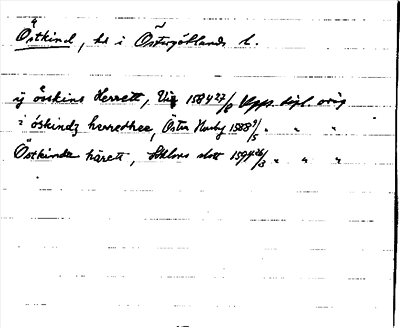 Östkind, hd i Östergötlands l.
ij össkins Herrett, 1584 27/8 Upps. dipl. orig
i óskindz herredhee, Östra Husby 1588 9/5 " " "
Östkinda härett, slott 1594 26/3 " " "